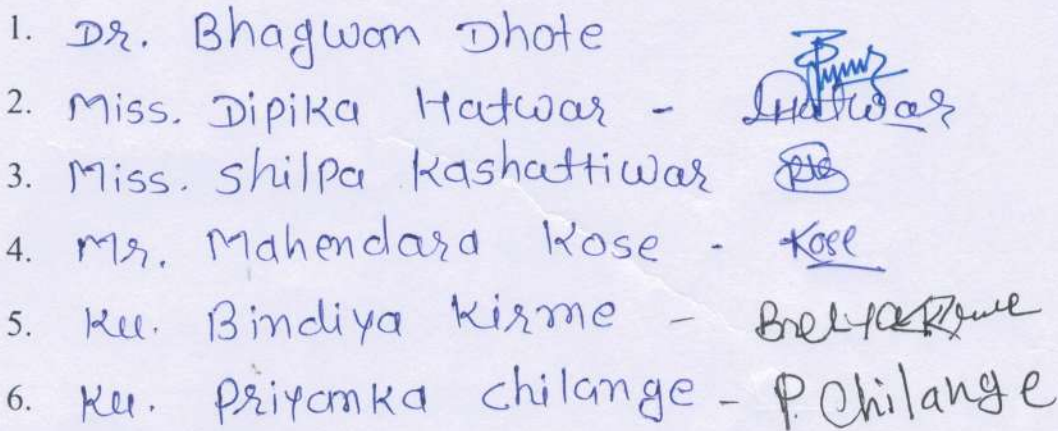 1. Dr. Bhagwan Dhote
2. Miss. Dipika Hatwar - DHatwar
3. Miss. Shilpa Kashattiwar
4. Mr. Mahendara Kose - Kose
5. Ku. Bindiya Kirme -
6. Ku. Priyanka Chilange - P. Chilange